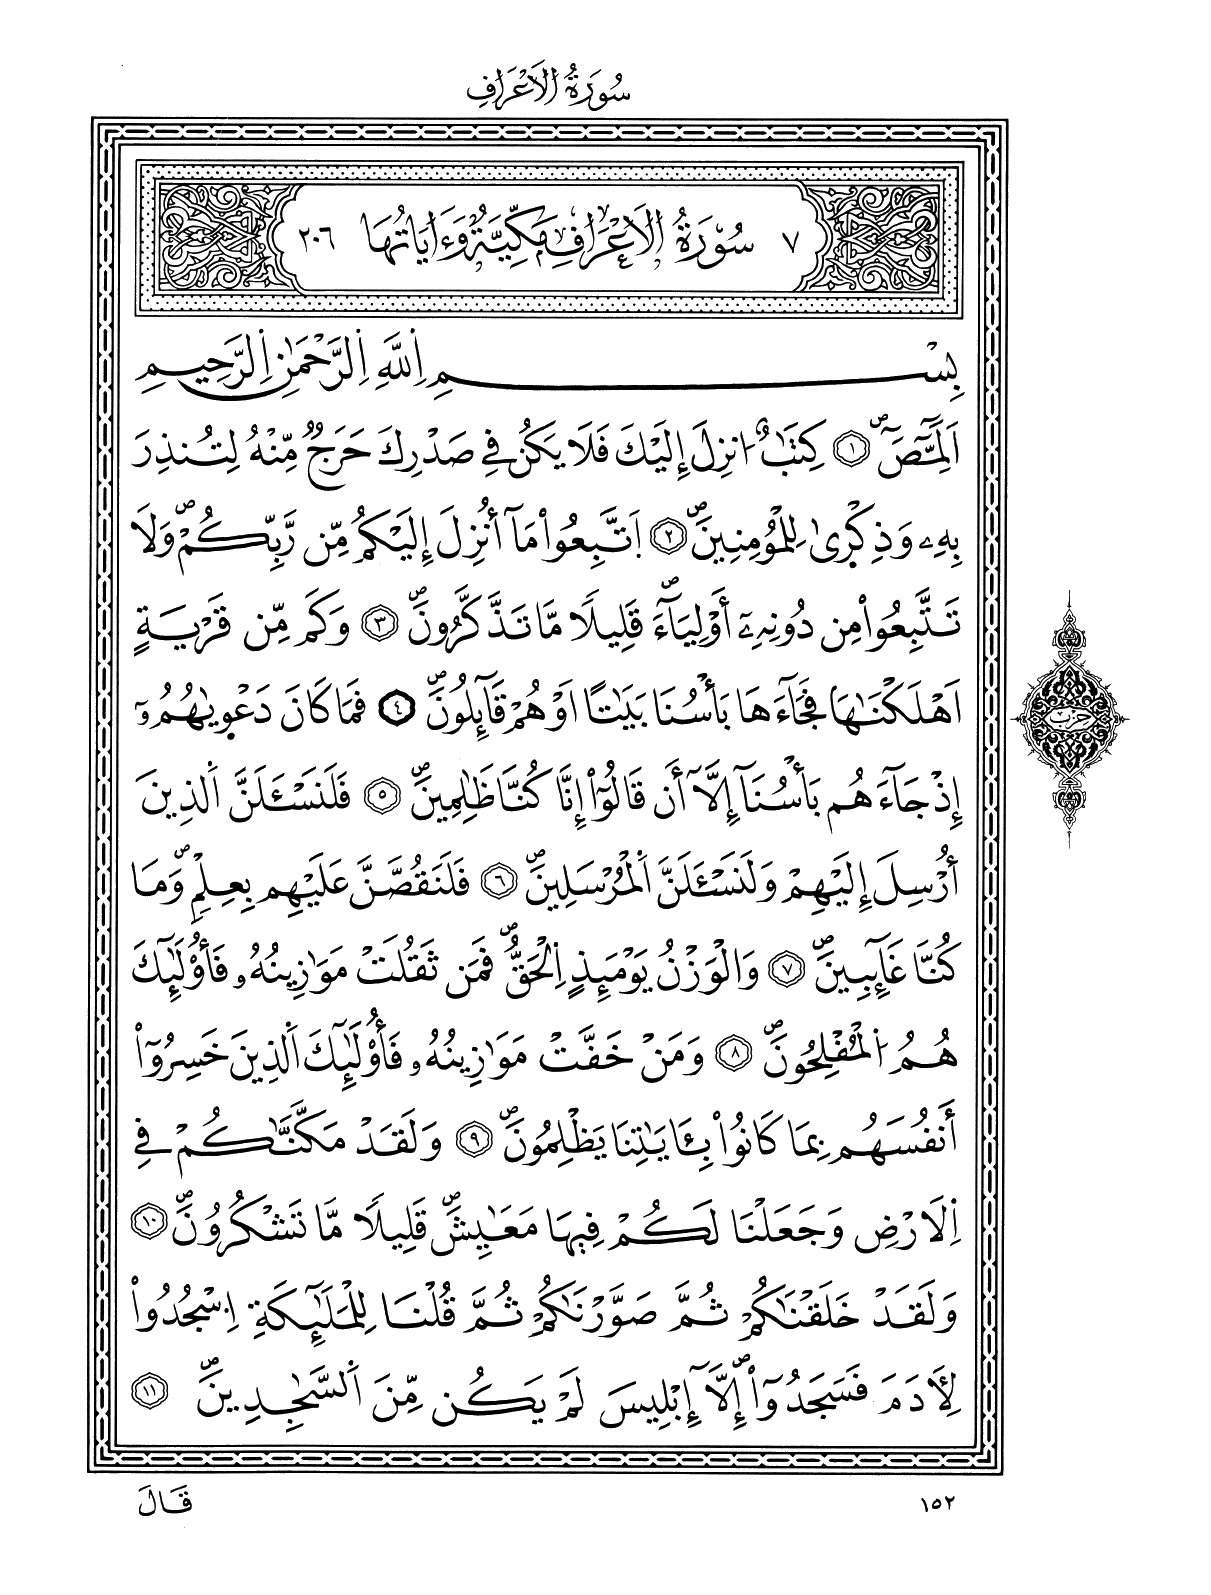 سُورَةُ الَاعْرَافِ
٧ سُورَةُ الَاعْرَافِ مَكِّيَّةٌ وَءَايَاتُهَا ٢٠٦
بِسْمِ اِللَّهِ اِلرَّحْمَٰنِ اِلرَّحِيمِ
أَلَٓمِّٓصَٓۖ ١ كِتَٰبٌ ا۟نزِلَ إِلَيْكَ فَلَا يَكُن فِے صَدْرِكَ حَرَجٞ مِّنْهُ لِتُنذِرَ
بِهِۦ وَذِكْر۪ىٰ لِلْمُومِنِينَۖ ٢ اَ۪تَّبِعُواْ مَآ أُنزِلَ إِلَيْكُم مِّن رَّبِّكُمْۖ وَلَا
تَتَّبِعُواْ مِن دُونِهِۦٓ أَوْلِيَآءَۖ قَلِيلًا مَّا تَذَّكَّرُونَۖ ٣ وَكَم مِّن قَرْيَةٍ
اَهْلَكْنَٰهَا فَجَآءَهَا بَأْسُنَا بَيَٰتًا اَوْ هُمْ قَآئِلُونَۖ ٤ فَمَا كَانَ دَعْو۪يٰهُمُۥٓ
إِذْ جَآءَهُم بَأْسُنَآ إِلَّآ أَن قَالُوٓاْ إِنَّا كُنَّا ظَٰلِمِينَۖ ٥ فَلَنَسْـَٔلَنَّ اَلذِينَ
أُرْسِلَ إِلَيْهِمْ وَلَنَسْـَٔلَنَّ اَلْمُرْسَلِينَۖ ٦ فَلَنَقُصَّنَّ عَلَيْهِم بِعِلْمٖۖ وَمَا
كُنَّا غَآئِبِينَۖ ٧ وَالْوَزْنُ يَوْمَئِذٍ اِلْحَقُّۖ فَمَن ثَقُلَتْ مَوَٰزِينُهُۥ فَأُوْلَٰٓئِكَ
هُمُ اُ۬لْمُفْلِحُونَۖ ٨ وَمَنْ خَفَّتْ مَوَٰزِينُهُۥ فَأُوْلَٰٓئِكَ اَلذِينَ خَسِرُوٓاْ
أَنفُسَهُم بِمَا كَانُواْ بِـَٔايَٰتِنَا يَظْلِمُونَۖ ٩ وَلَقَدْ مَكَّنَّٰكُمْ فِے
اِلَارْضِ وَجَعَلْنَا لَكُمْ فِيهَا مَعَٰيِشَۖ قَلِيلًا مَّا تَشْكُرُونَۖ ١٠
وَلَقَدْ خَلَقْنَٰكُمْ ثُمَّ صَوَّرْنَٰكُمْ ثُمَّ قُلْنَا لِلْمَلَٰٓئِكَةِ اِ۟سْجُدُواْ
لِأٓدَمَ فَسَجَدُوٓاْ إِلَّآ إِبْلِيسَۖ لَمْ يَكُن مِّنَ اَلسَّٰجِدِينَۖ ١١
حزب
١٥٢
قَالَ